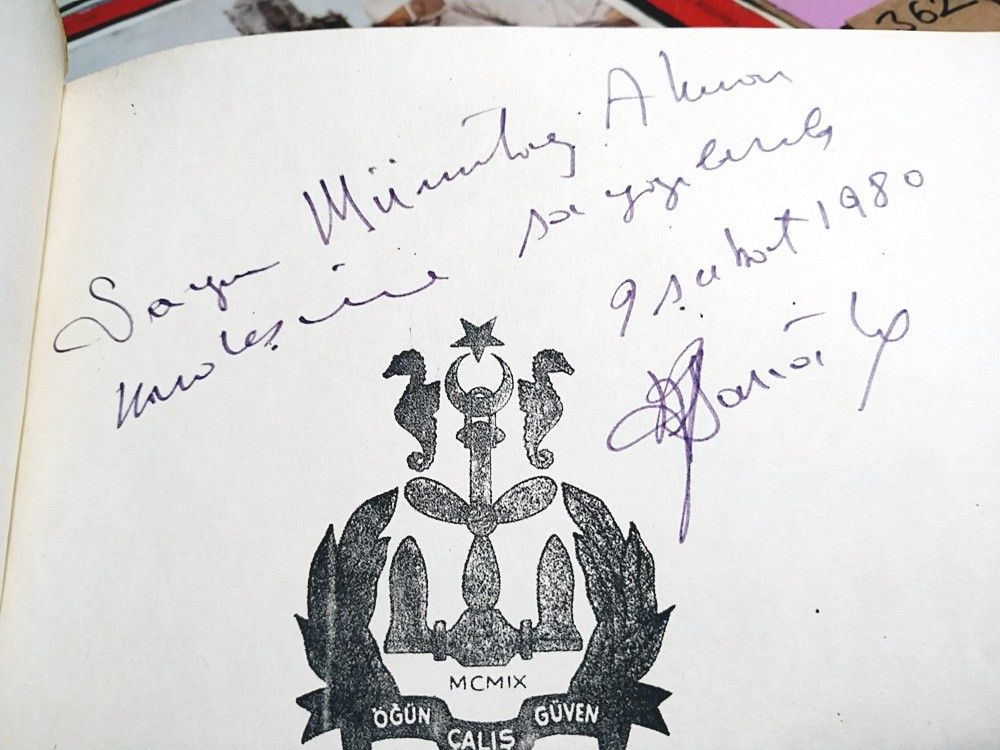 362
Sayın Mümtaz Akman
kardeşime saygılarla
9 şubat 1980
MCMIX
ÖĞÜN ÇALIŞ GÜVEN